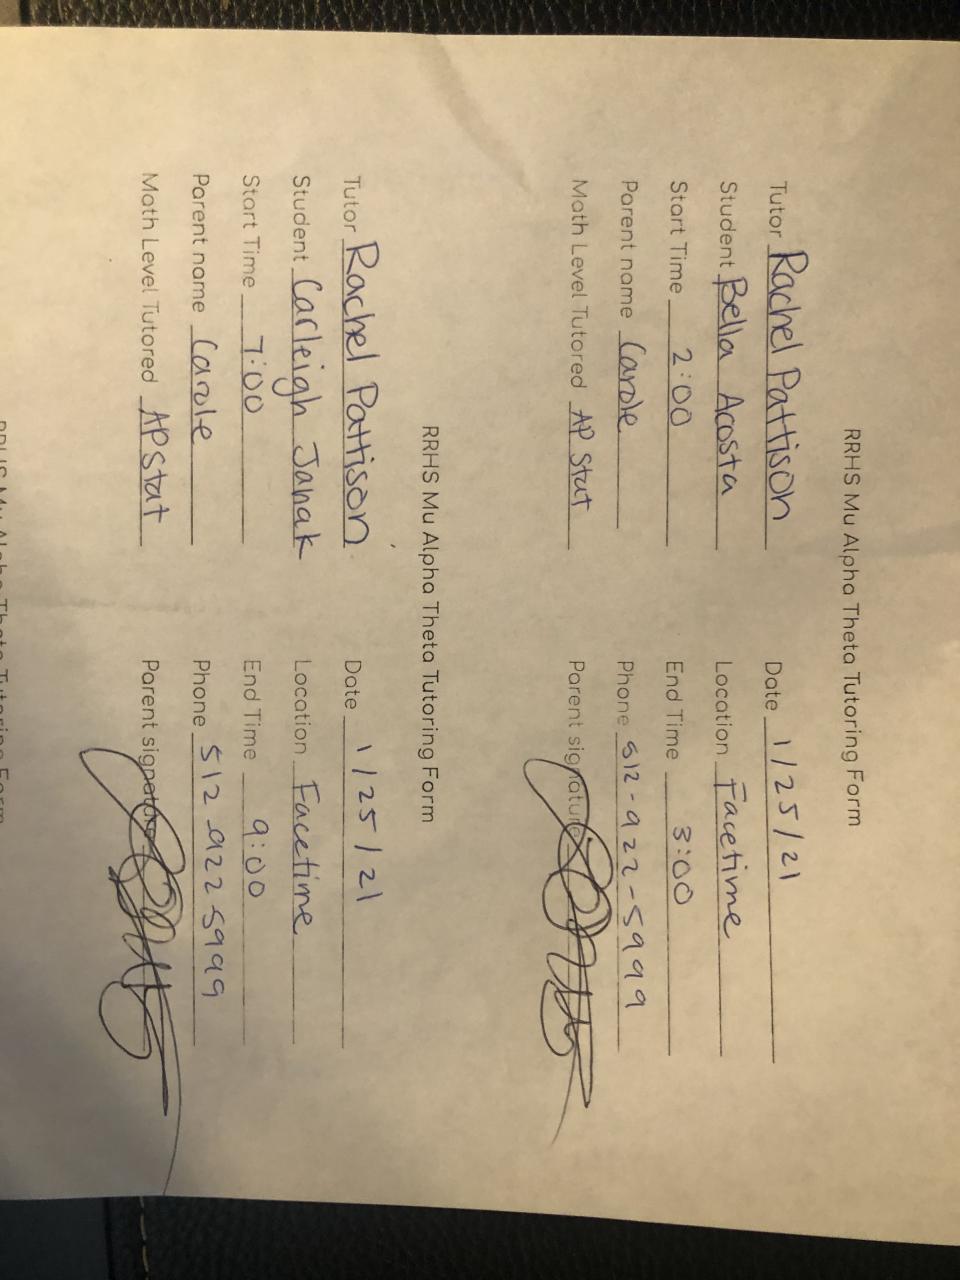 RRHS Mu Alpha Theta Tutoring Form
Tutor Rachel Pattison Date 1/25/21
Student Bella Acosta Location Facetime
Start Time 2:00 End Time 3:00
Parent name Carole Phone 512-922-5999
Math Level Tutored AP Stat Parent signature
RRHS Mu Alpha Theta Tutoring Form
Tutor Rachel Pattison Date 1/25/21
Student Carleigh Janak Location Facetime
Start Time 7:00 End Time 9:00
Parent name Carole Phone 512-922-5999
Math Level Tutored AP Stat Parent signature
RRHS Mu Alpha Theta Tutoring Form